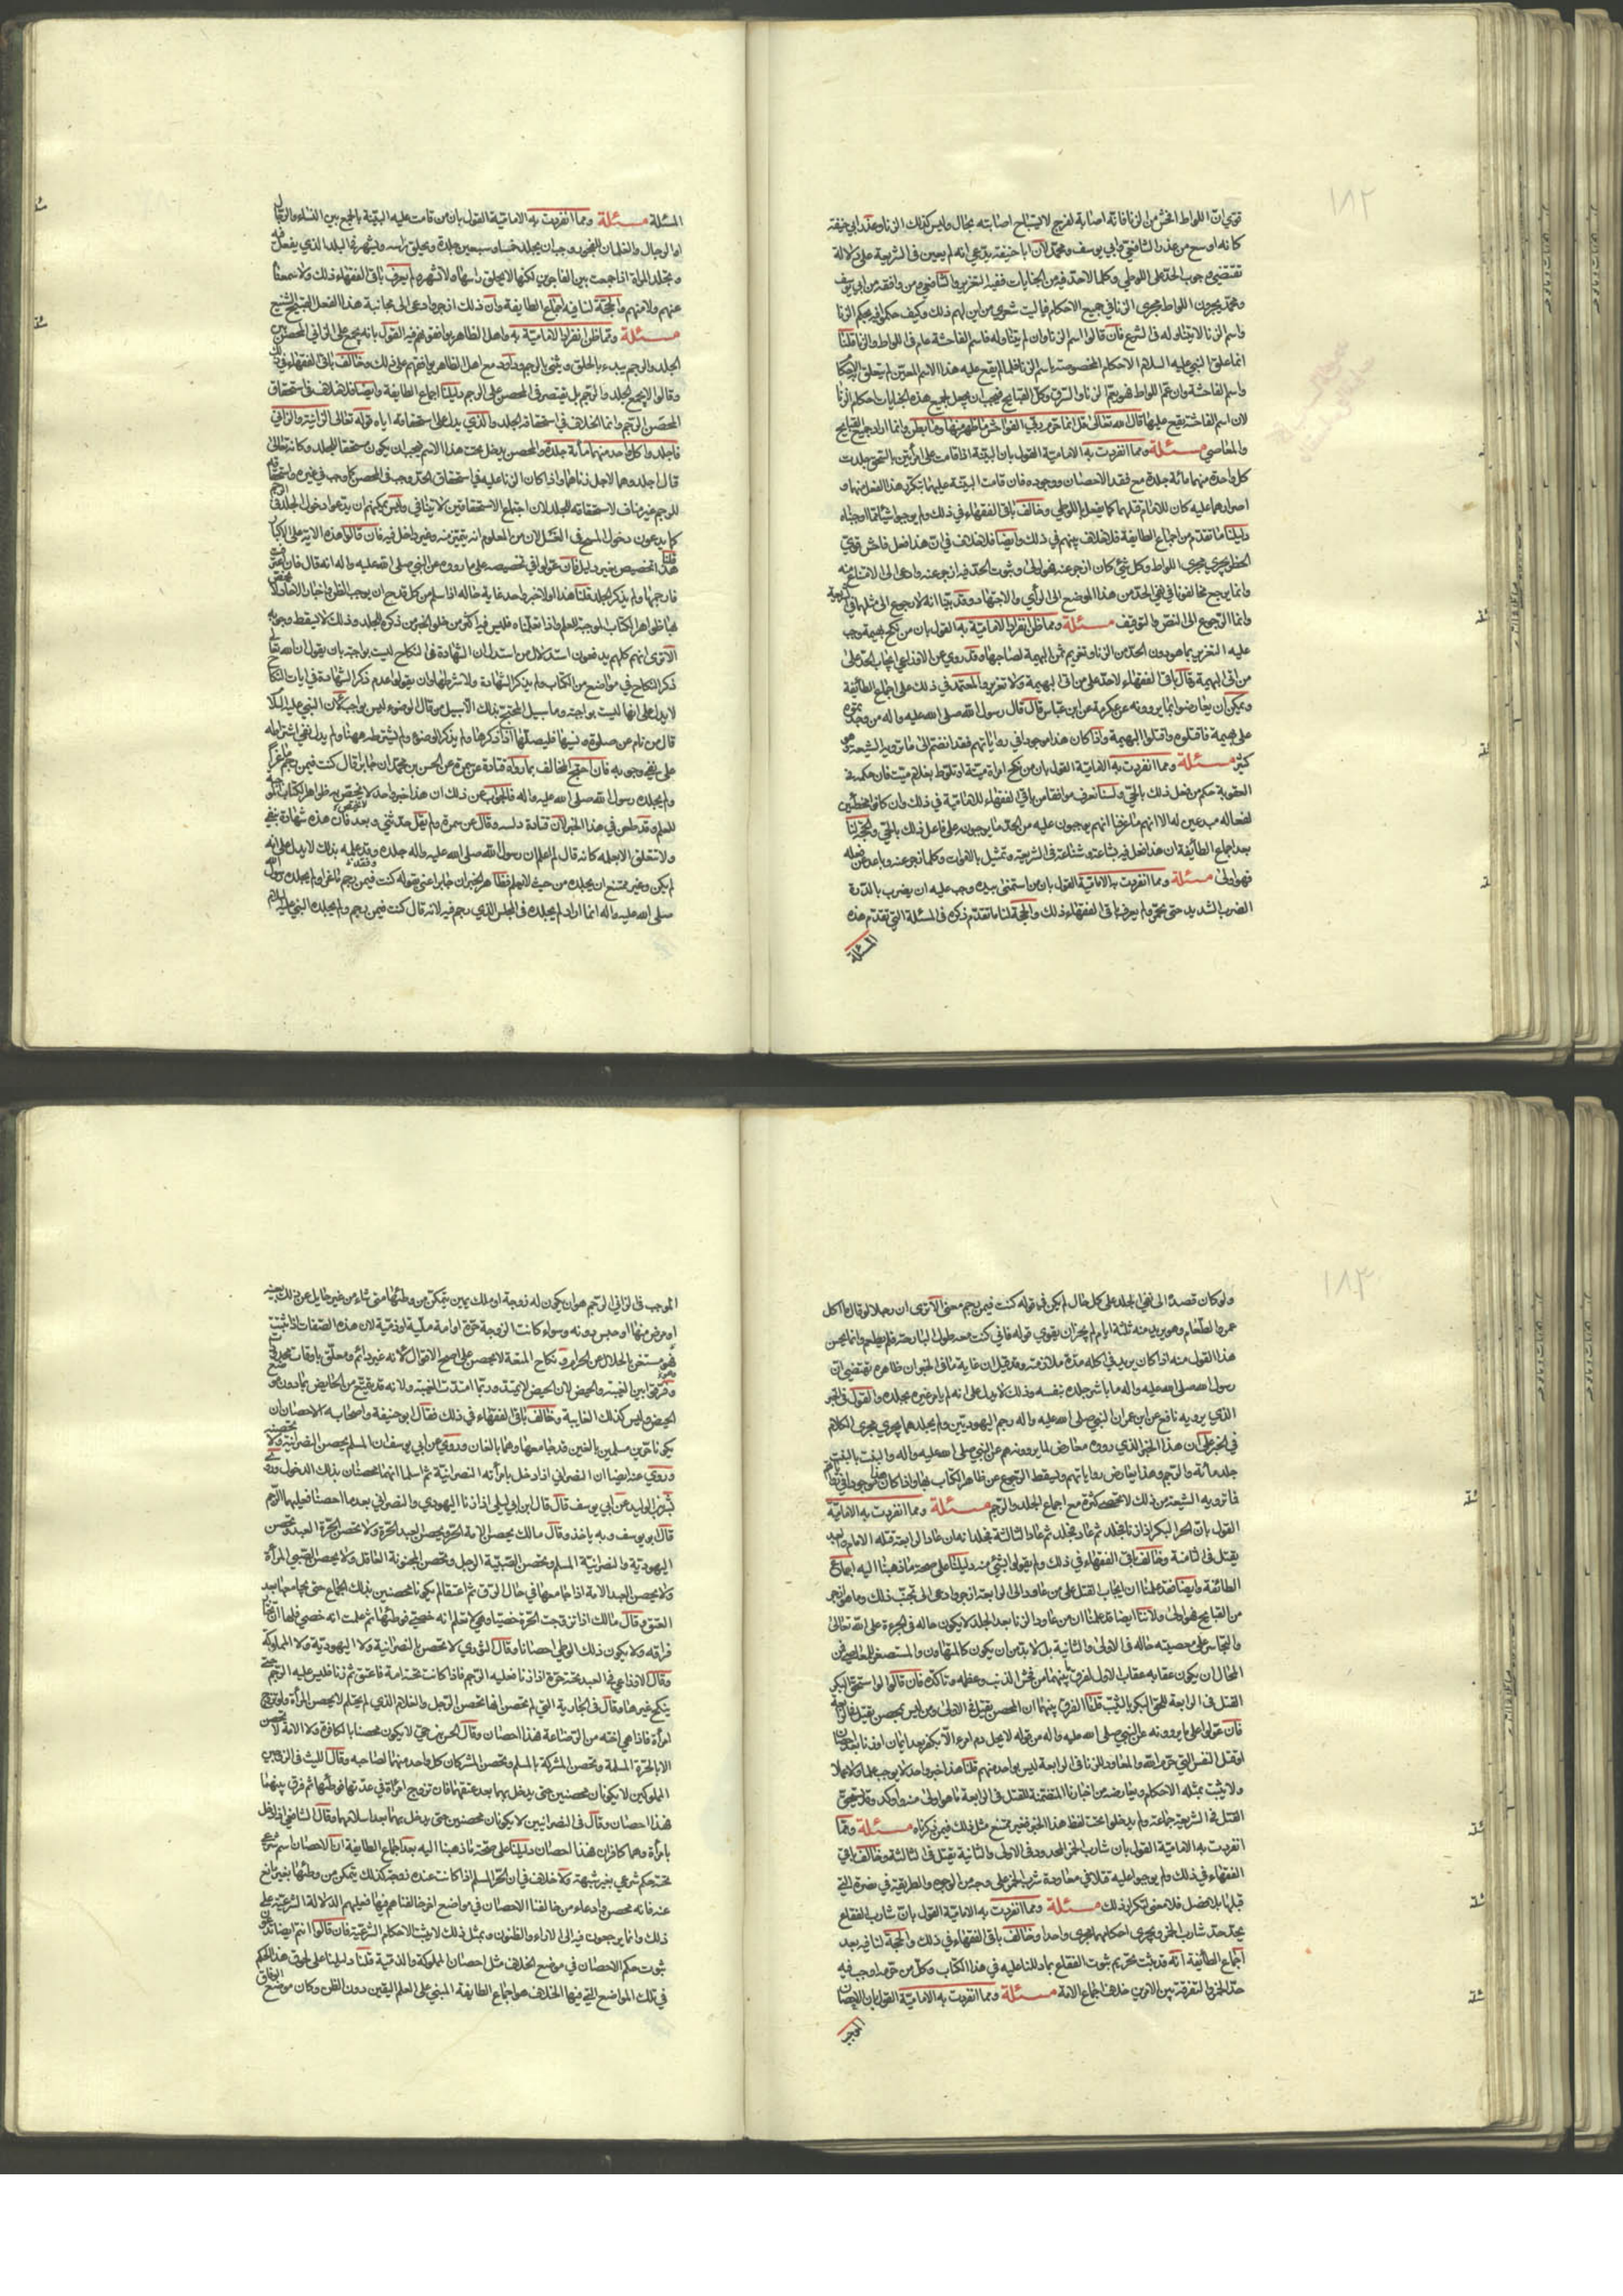 ١٨٢
قوي ان اللواط افحش من الزنا فانه اصابة لفرج لا يستباح اصابته بحال وليس كذلك الزنا وعذر ابي حنيفة
كانه اوسع من عذر الشافعي وابي يوسف ومحمد لان ابا حنيفة يدعي انه لم يعين في الشريعة على دلالة
تقتضي وجوب الحد على اللوطي وكلما لا حد فيه من الجنايات ففيه التعزير والشافعي ومن وافقه من ابي يوسف
ومحمد يجرون اللواط مجرى الزنا في جميع الاحكام فيا ليت شعري من اين لهم ذلك وكيف حكموا فيه بحكم الزنا
واسم الزنا لا يتناوله في الشرع فان قالوا اسم الزنا وان لم يتناوله فاسم الفاحشة عام في اللواط والزنا قلنا
انما علق النبي عليه السلام الاحكام المخصوصة باسم الزنا فلما لم يقع عليه هذا الاسم المعين لم يتعلق الاحكام
واسم الفاحشة وان عم اللواط فهو يعم الزنا والسرق وكل القبايح فيجب ان يجعل لجميع هذه الجنايات احكام الزنا
لان اسم الفاحشة يقع عليها قال الله تعالى قل انما حرم ربي الفواحش ما ظهر منها وما بطن وانما اراد جميع القبايح
والمعاصي مسئلة ومما انفردت به الامامية القول بان البينة اذا قامت على امرأتين بالسحق جلدت
كل واحدة منهما مائة جلدة مع فقد الاحصان ووجوده فان قامت البينة عليهما بتكرر هذا الفعل منهما و
اصرارهما عليه كان للامام قتلهما كما يفعل باللوطي وخالف باقي الفقهاء في ذلك ولم يوجبوا شيئا مما اوجبناه
دليلنا ما تقدم من اجماع الطايفة فلا خلاف بينهم في ذلك وايضا فلا خلاف في ان هذا فعل فاحش قوي
الحظر يجري مجرى اللواط وكل شيئ كان ازجر عنه فهو اولى وثبوت الحد فيه ازجر عنه وادعى الى الامتناع منه
وانما يرجع مخالفونا في نفي الحد من هذا الموضع الى الرأي والاجتهاد وقد بينا انه لا رجوع الى مثلهما في الشريعة
وانما الرجوع الى النص والتوقيف مسئلة ومما ظن انفراد الامامية به القول بان من نكح بهيمة وجب
عليه التعزير بما هو دون الحد من الزنا وتغريم ثمن البهيمة لصاحبها وقد روي عن الاوزاعي ايجاب الحد على
من اتى البهيمة وقال باقي الفقهاء لا حد على من اتى البهيمة ولا تعزير والمعتمد في ذلك على اجماع الطائفة
ويمكن ان يعارضوا بما يروونه عن عكرمة عن ابن عباس قال قال رسول الله صلى الله عليه واله من وجدتموه
على بهيمة فاقتلوه واقتلوا البهيمة واذا كان هذا موجودا في رواياتهم فقد انضم الى ما ترويه الشيعة وهو
كثير مسئلة ومما انفردت به الامامية القول بان من نكح امراة ميتة او تلوط بغلام ميت فان حكمه في
العقوبة حكم من فعل ذلك بالحي ولسنا نعرف موافقا من باقي الفقهاء للامامية في ذلك وان كانوا مخطئين
لفعاله مبدعين له الا انهم ما عرفنا انهم يوجبون عليه من الحد ما يوجبون على فاعل ذلك بالحي والحجة لنا
بعد اجماع الطائفة ان هذا فعل فيه بشاعة وشناعة في الشريعة وتمثيل بالاموات وكلما زجر عنه وباعد من فعله
فهو اولى مسئلة ومما انفردت به الامامية القول بان من استمنى بيده وجب عليه ان يضرب بالدرة
الضرب الشديد حتى تحمر ولم يعرف باقي الفقهاء ذلك والحجة لنا ما تقدم ذكره في المسئلة التي تقدم هذه
المسئلة
المسئلة مسئلة ومما انفردت به الامامية القول بان من قامت عليه البينة بالجمع بين النساء والرجال
او الرجال والغلمان للفجور وجب ان يجلد خمسا وسبعين جلدة ويحلق راسه ويشهر في البلد الذي يفعل فيه
وتجلد المراة اذا جمعت بين الفاجرين لكنها لا يحلق راسها ولا تشهر ولم يعرف باقي الفقهاء ذلك ولا سمعناه
عنهم ولا منهم والحجة لنا فيه اجماع الطايفة وان ذلك ازجر وادعى الى مجانبة هذا الفعل القبيح الشنيع
مسئلة ومما ظن انفراد الامامية به واهل الظاهر يوافقونهم فيه القول بانه يجمع على الزاني المحصن بين
الجلد والرجم يبدء بالجلد ويثنى بالرجم وداود مع اهل الظاهر يوافقهم على ذلك وخالف باقي الفقهاء في ذلك
وقالوا لا يجمع الجلد والرجم بل يقتصر في المحصن على الرجم دليلنا اجماع الطايفة وايضا فلا خلاف في استحقاق
المحصن الرجم وانما الخلاف في استحقاقه الجلد والذي يدل على استحقاقه اياه قوله تعالى الزانية والزاني
فاجلدوا كل واحد منهما مائة جلدة والمحصن يدخل تحت هذا الاسم فيجب ان يكون مستحقا للجلد وكانه تعالى
قال اجلدوهما لاجل زناهما واذا كان الزنا علة في استحقاق الحد وجب في المحصن كما وجب في غيره واستحقاقه
للرجم غير مناف لاستحقاقه للجلد لان اجتماع الاستحقاقين لا يتنافى وليس يمكنهم ان يدعوا دخول الجلد في الرجم
كما يدعون دخول المسح في الغسل لان من المعلوم انه متميز منه وغير داخل فيه فان قالوا هذه الاية على الابكار
قلنا هذا تخصيص بغير دليل فان عولوا في تخصيصه على ما رووه عن النبي صلى الله عليه واله انه قال فان اعترفت
فارجمها ولم يذكر الجلد قلنا هذا اولا خبر واحد غاية حاله اذا سلم من كل قدح ان يوجب الظن واخبار الاحاد لا يخص
بها ظواهر الكتاب الموجبة للعلم واذا تعلمناه فليس فيه اكثر من خلو الخبر من ذكر الجلد وذلك لا يسقط وجوبه
الا ترى انهم كلهم يدفعون استدلال من استدل ان الشهادة في النكاح ليست بواجبة بان يقول ان الله تعالى
ذكر النكاح في مواضع من الكتاب ولم يذكر الشهادة ولا شرطها وان يقولوا عدم ذكر الشهادة في ايات النكاح
لا يدل على انها ليست بواجبة وما سبيل المحتج بذلك الا سبيل من قال الوضوء ليس بواجب لان النبي عليه السلام
قال من نام عن صلوة او نسيها فليصلها اذا ذكرها ولم يذكر الوضوء ولم يشترطه ههنا ولم يدل نفي اشتراطه
على نفي وجوبه فان احتج المخالف بما رواه قتادة عن سمرة عن الحسن بن محمد ان جابرا قال كنت فيمن رجم ماعزا
ولم يجلده رسول الله صلى الله عليه واله فالجواب عن ذلك ان هذا خبر واحد لا يختص به ظواهر الكتاب الموجبة
للعلم وقد طعن في هذا الخبر لان قتادة دلسه وقال عن سمرة ولم يقل حدثني وبعد فان هذه شهادة بنفي
ولا تتعلق الا بعلمه كانه قال لم اعلم ان رسول الله صلى الله عليه واله جلده وفقد علمه بذلك لا يدل على انه
لم يكن وغير ممتنع ان يجلده من حيث لا يعلم فظاهر الخبر ان جابرا عنى بقوله كنت فيمن رجم ماعزا ولم يجلده رسول الله
صلى الله عليه واله انما اراد لم يجلده في المجلس الذي رجم فيه لانه قال كنت فيمن رجم ولم يجلده النبي عليه السلام
١٨٣
ولو كان قصده الى نفي الجلد على كل حال لم يكن في قوله كنت فيمن رجم معنى الا ترى ان رجلا لو قال ما اكل
عمرو الطعام وهو يريد منه ثلثة ايام لم يجز ان يقوي قوله فاني كنت معه طول البارحة فلم يطعم وانما يحسن
هذا القول منه اذا كان يريد نفي اكله مدة ملازمته وقد قيل ان غاية ما في الخبر ان ظاهره يقتضي ان
رسول الله صلى الله عليه واله ما باشر جلده بنفسه وذلك لا يدل على انه لم يامر غيره بجلده والقول في الخبر
الذي يرويه نافع عن ابن عمر ان النبي صلى الله عليه واله رجم اليهوديين ولم يجلدهما يجري مجرى الكلام
في الخبر على ان هذا الخبر الذي رووه معارض لما يروونهم عن النبي صلى الله عليه واله والثيب بالثيب
جلد مائة والرجم وهذا يعارض رواياتهم ويسقط الرجوع عن ظاهر الكتاب بها واذا كان هذا موجودا في رواياتهم
فما ترويه الشيعة من ذلك لا يحصى كثرة مع اجماع الجلد والرجم مسئلة ومما انفردت به الامامية
القول بان الحر البكر اذا زنا فجلد ثم عاد فجلد ثم عاد الثالثة فجلد انه ان عاد الرابعة قتله الامام والعبد
يقتل في الثامنة وخالف باقي الفقهاء في ذلك ولم يقولوا بشيئ منه دليلنا على صحة ما ذهبنا اليه اجماع
الطائفة وايضا فقد علمنا ان ايجاب القتل على من عاود الى الرابعة ازجر وادعى الى تجنب ذلك وما هو ازجر
من القبايح فهو اولى ولاننا ايضا قد علمنا ان من عاود الزنا بعد الجلد لا يكون حاله في الجرءة على الله تعالى
والتجاسر على معصيته حاله في الاولى والثانية بل لا بد من ان يكون كالمتهاون والمستصغر للمعاصي فمن
المحال ان يكون عقابه عقاب الاول لفرق بينهما من فحش الذنب وعظمه وتاكده فان قالوا لو استحق البكر
القتل في الرابعة للحق البكر بالثيب قلنا الفرق بينهما ان المحصن يقتل في الاولى ومن ليس بمحصن يقتل في الرابعة
فان عولوا على ما يروونه عن النبي صلى الله عليه واله من قوله لا يحل دم امرء الا بكفر بعد ايمان او زنا بعد احصان
او قتل النفس التي حرم الله والمعاود للزنا في الرابعة ليس بواحد منهم قلنا هذا خبر واحد لا يوجب علما ولا عملا
ولا يثبت بمثله الاحكام ويعارضه من اخبارنا المتضمنة للقتل في الرابعة ما هو اولى منه واوكد وقد استحق
القتل في الشريعة جماعة ولم يدخلوا تحت لفظ هذا الخبر فغير ممتنع مثل ذلك فيمن ذكرناه مسئلة ومما
انفردت به الامامية القول بان شارب الخمر المحدود في الاولى والثانية يقتل في الثالثة وخالف باقي
الفقهاء في ذلك ولم يوجبوا عليه قتلا في معاودة شرب الخمر على وجه من الوجوه والطريقة في نصرة التي
قبلها بلا فصل فلا معنى لتكرار ذلك مسئلة ومما انفردت به الامامية القول بان شارب الفقاع
يحد حد شارب الخمر ويجري احكامهما مجرى واحدا وخالف باقي الفقهاء في ذلك والحجة لنا فيه بعد
اجماع الطائفة انه قد ثبت تحريم شرب الفقاع بما دللنا عليه في هذا الكتاب وكل من حرمه اوجب فيه
حد الخمر والتفرقة بين الامرين خلاف اجماع الامة مسئلة ومما انفردت به الامامية القول بان الاحصان
الموجب
الموجب في الزاني الرجم هو ان يكون له زوجة او ملك يمين يتمكن من وطئها متى شاء من غير حايل عن ذلك بغيبة
او مرض منها او حبس دونه وسواء كانت الزوجة حرة او امة ملية او ذمية لان هذه الصفات اذا ثبتت
فهو مستغن بالحلال عن الحرام ونكاح المتعة لا يحصن على اصح الاقوال لانه غير دائم ومعلق باوقات محدودة
وفرقوا بين الغيبة والحيض لان الحيض لا يمتد وربما امتدت الغيبة ولانه قد يتمتع من الحايض بما دون موضع
الحيض وليس كذلك الغايبة وخالف باقي الفقهاء في ذلك فقال ابو حنيفة واصحابه الاحصان ان
يكونا حرين مسلمين بالغين قد جامعها وهما بالغان وروي عن ابي يوسف ان المسلم يحصن النصرانية ولا تحصنه
وروي عنه ايضا ان النصراني اذا دخل بامرأته النصرانية ثم اسلما انهما محصنان بذلك الدخول وروى
بشر بن الوليد عن ابي يوسف قال قال ابن ابي ليلى اذا زنا اليهودي والنصراني بعد ما احصنا فعليهما الرجم
قال ابو يوسف وبه ياخذ وقال مالك يحصن الامة الحر ويحصن العبد الحرة ولا تحصن الحرة العبد وتحصن
اليهودية والنصرانية المسلم وتحصن الصبية الرجل وتحصن المجنونة العاقل ولا يحصن الصبي المرأة
ولا يحصن العبد الامة اذا جامعها في حال الرق ثم اعتقا لم يكونا محصنين بذلك الجماع حتى يجامعها بعد
العتق وقال مالك اذا تزوجت الحرة خصيا وهي لا تعلم انه خصي فوطئها ثم علمت انه خصي فلها ان تختار
فراقه ولا يكون ذلك الوطي احصانا وقال الثوري لا تحصن بالنصرانية ولا اليهودية ولا المملوكة
وقال الاوزاعي في العبد تحته حرة اذا زنا فعليه الرجم فاذا كانت تحته امة فاعتق ثم زنا فليس عليه الرجم حتى
ينكح غيرها وقال في الجارية التي لم تحصن انها تحصن الرجل والغلام الذي لم يحتلم لا يحصن المرأة ولو تزوج
امرأة فاذا هي اخته من الرضاعة فهذا احصان وقال الحسن بن حي لا يكون محصنا بالكافرة ولا الامة لا تحصن
الا بالحرة المسلمة وتحصن المشركة بالمسلم وتحصن المشركان كل واحد منهما لصاحبه وقال الليث في الزوجين
المملوكين لا يكونان محصنين حتى يدخل بهما بعد عتقهما فان تزوج امرأة في عدتها فوطئها ثم فرق بينهما
فهذا احصان وقال في النصرانيين لا يكونان محصنين حتى يدخل بهما بعد اسلامهما وقال الشافعي اذا دخل
بامرأة وهما كافران فهذا احصان دليلنا على صحة ما ذهبنا اليه بعد اجماع الطايفة ان الاحصان اسم شرعي
تحته حكم شرعي بغير شبهة ولا خلاف في ان الحر المسلم اذا كانت عنده زوجة كذلك يتمكن من وطئها بغير مانع
عنه فانه محصن وادعاء من خالفنا الاحصان في مواضع اخر خالفناهم فيها فعليهم الدلالة الشرعية على
ذلك وانما يرجعون فيه الى الاراء والظنون وبمثل ذلك لا يثبت الاحكام الشرعية فان قالوا انتم ايضا تدعون
ثبوت حكم الاحصان في موضع الخلاف مثل احصان المملوكة والذمية قلنا دليلنا على لحوق هذا الحكم
في تلك المواضع التي فيها الخلاف هو اجماع الطايفة المبني على العلم اليقين دون الظن وكان موضع الوفاق